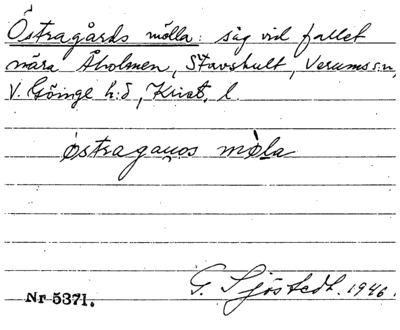 Östragårds mölla: såg vid fallet
nära Åholmen, Stavshult, Verums sn,
V. Göinge h:d, Krist. l.
östragauos möla
G. Sjöstedt. 1946.
Nr 5371.